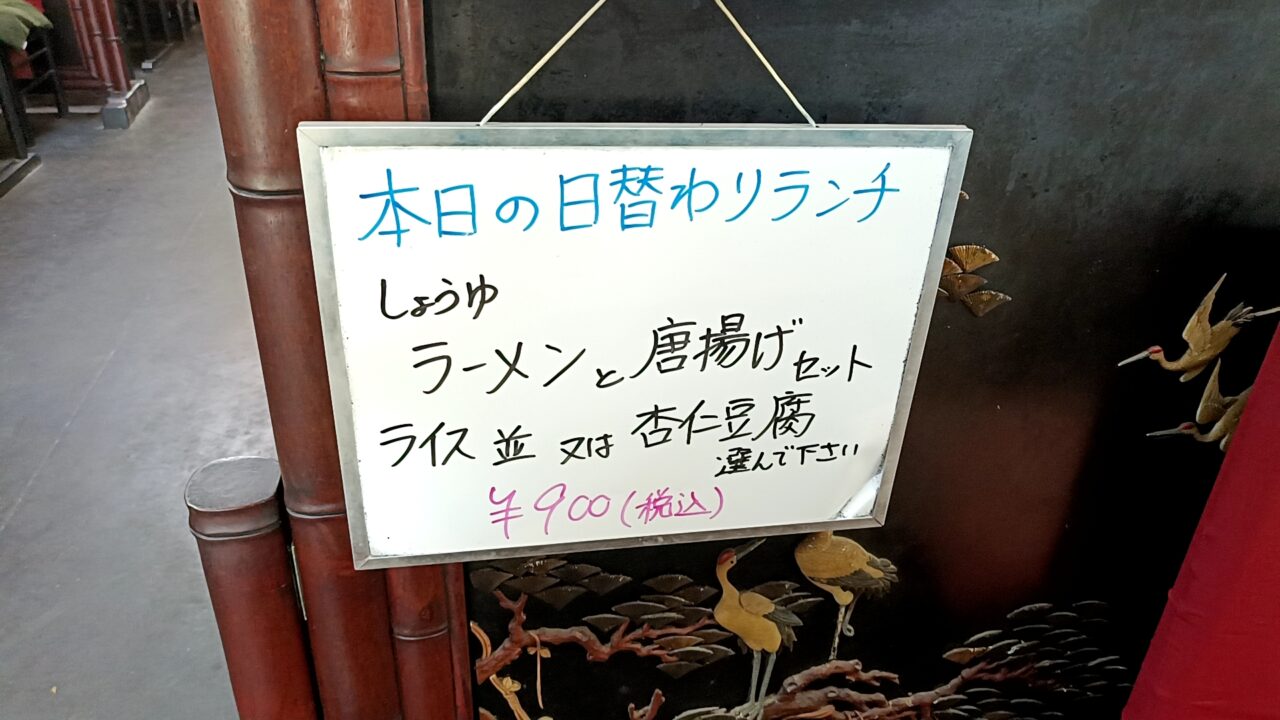 本日の日替わりランチ
しょうゆ
ラーメンと唐揚げセット
ライス 並 又は 杏仁豆腐
選んで下さい
¥900(税込)